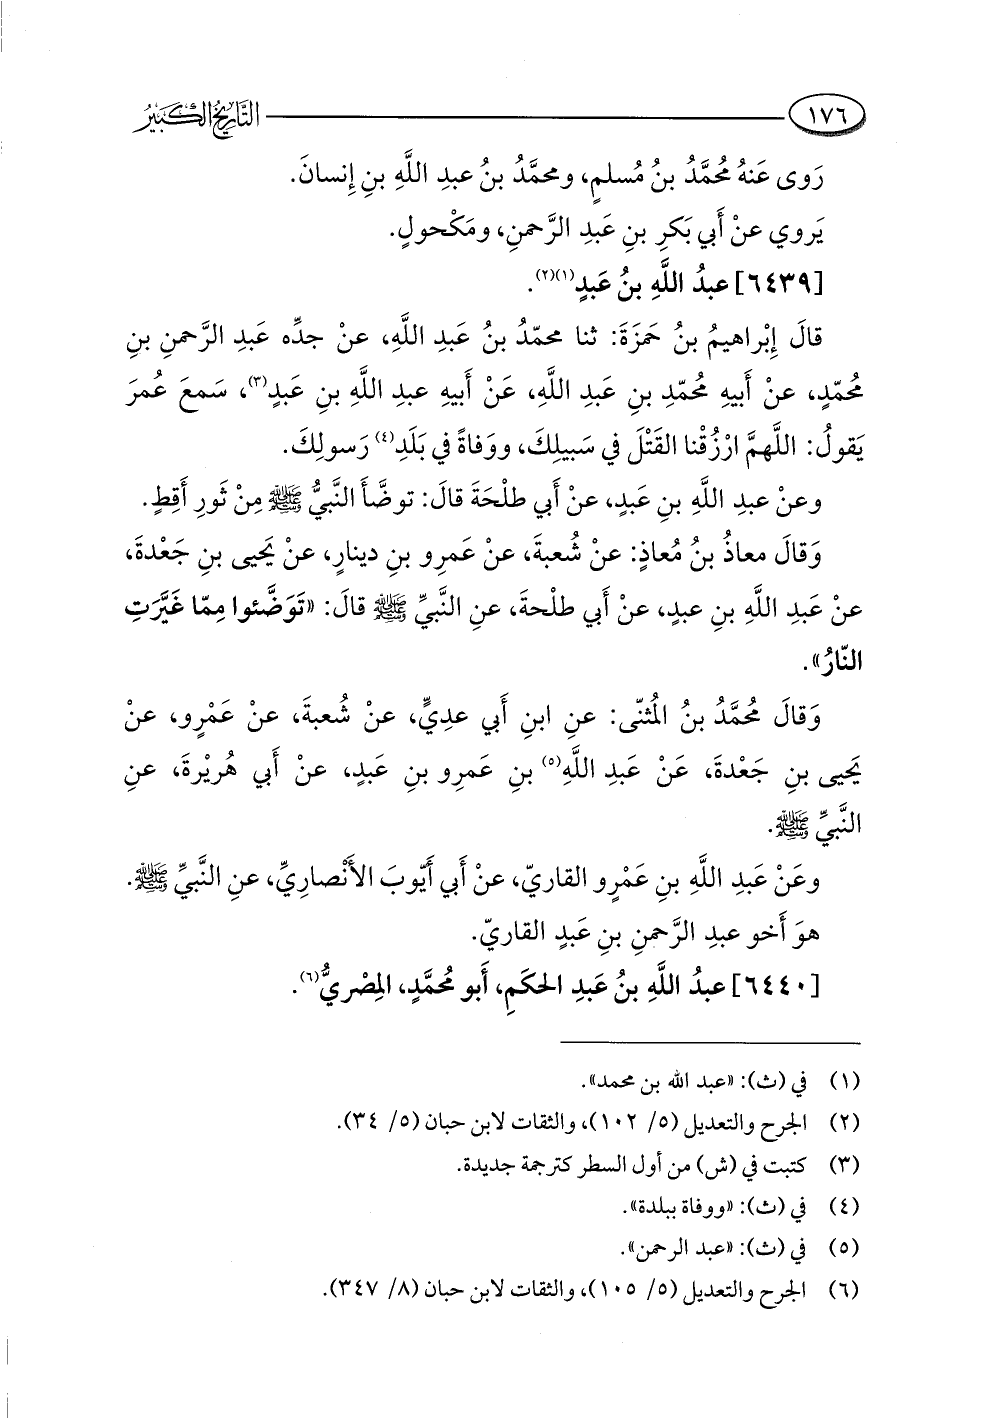 ١٧٦
التَّارِيخُ الكَبِيرُ
رَوى عَنهُ مُحمَّدُ بنُ مُسلمٍ، ومحمَّدُ بنُ عبدِ اللَّهِ بنِ إِنسانَ.
يَروي عنْ أَبي بَكرِ بنِ عَبدِ الرَّحمنِ، ومَكْحولٍ.
[٦٤٣٩] عبدُ اللَّهِ بنُ عَبدٍ(١)(٢).
قالَ إِبْراهيمُ بنُ حَمزَةَ: ثنا محمّدُ بنُ عَبدِ اللَّهِ، عنْ جدِّه عَبدِ الرَّحمنِ بنِ
مُحمّدٍ، عنْ أَبيهِ مُحمّدِ بنِ عَبدِ اللَّهِ، عَنْ أَبيهِ عبدِ اللَّهِ بنِ عَبدٍ(٣)، سَمعَ عُمرَ
يَقولُ: اللَّهمَّ ارْزُقْنا القَتْلَ في سَبيلِكَ، ووَفاةً في بَلَدِ(٤) رَسولِكَ.
وعنْ عبدِ اللَّهِ بنِ عَبدٍ، عنْ أَبي طلْحَةَ قالَ: توضَّأَ النَّبيُّ ﷺ مِنْ ثَورِ أَقِطٍ.
وَقالَ معاذُ بنُ مُعاذٍ: عنْ شُعبةَ، عنْ عَمرِو بنِ دينارٍ، عنْ يَحيى بنِ جَعْدةَ،
عنْ عَبدِ اللَّهِ بنِ عبدٍ، عنْ أَبي طلْحةَ، عنِ النَّبيِّ ﷺ قالَ: «تَوَضَّئوا مِمّا غَيَّرَتِ
النّارُ».
وَقالَ مُحمَّدُ بنُ المُثنّى: عنِ ابنِ أَبي عديٍّ، عنْ شُعبةَ، عنْ عَمْرٍو، عنْ
يَحيى بنِ جَعْدةَ، عَنْ عَبدِ اللَّهِ(٥) بنِ عَمرِو بنِ عَبدٍ، عنْ أَبي هُريْرةَ، عنِ
النَّبيِّ ﷺ.
وعَنْ عَبدِ اللَّهِ بنِ عَمْرٍو القاريّ، عنْ أَبي أَيّوبَ الأَنْصاريِّ، عنِ النَّبيِّ ﷺ.
هوَ أَخو عبدِ الرَّحمنِ بنِ عَبدٍ القاريّ.
[٦٤٤٠] عبدُ اللَّهِ بنُ عَبدِ الحكَمِ، أَبو مُحمَّدٍ، المِصْريُّ(٦).
(١) في (ث): «عبد الله بن محمد».
(٢) الجرح والتعديل (٥/ ١٠٢)، والثقات لابن حبان (٥/ ٣٤).
(٣) كتبت في (ش) من أول السطر كترجمة جديدة.
(٤) في (ث): «ووفاة ببلدة».
(٥) في (ث): «عبد الرحمن».
(٦) الجرح والتعديل (٥/ ١٠٥)، والثقات لابن حبان (٨/ ٣٤٧).